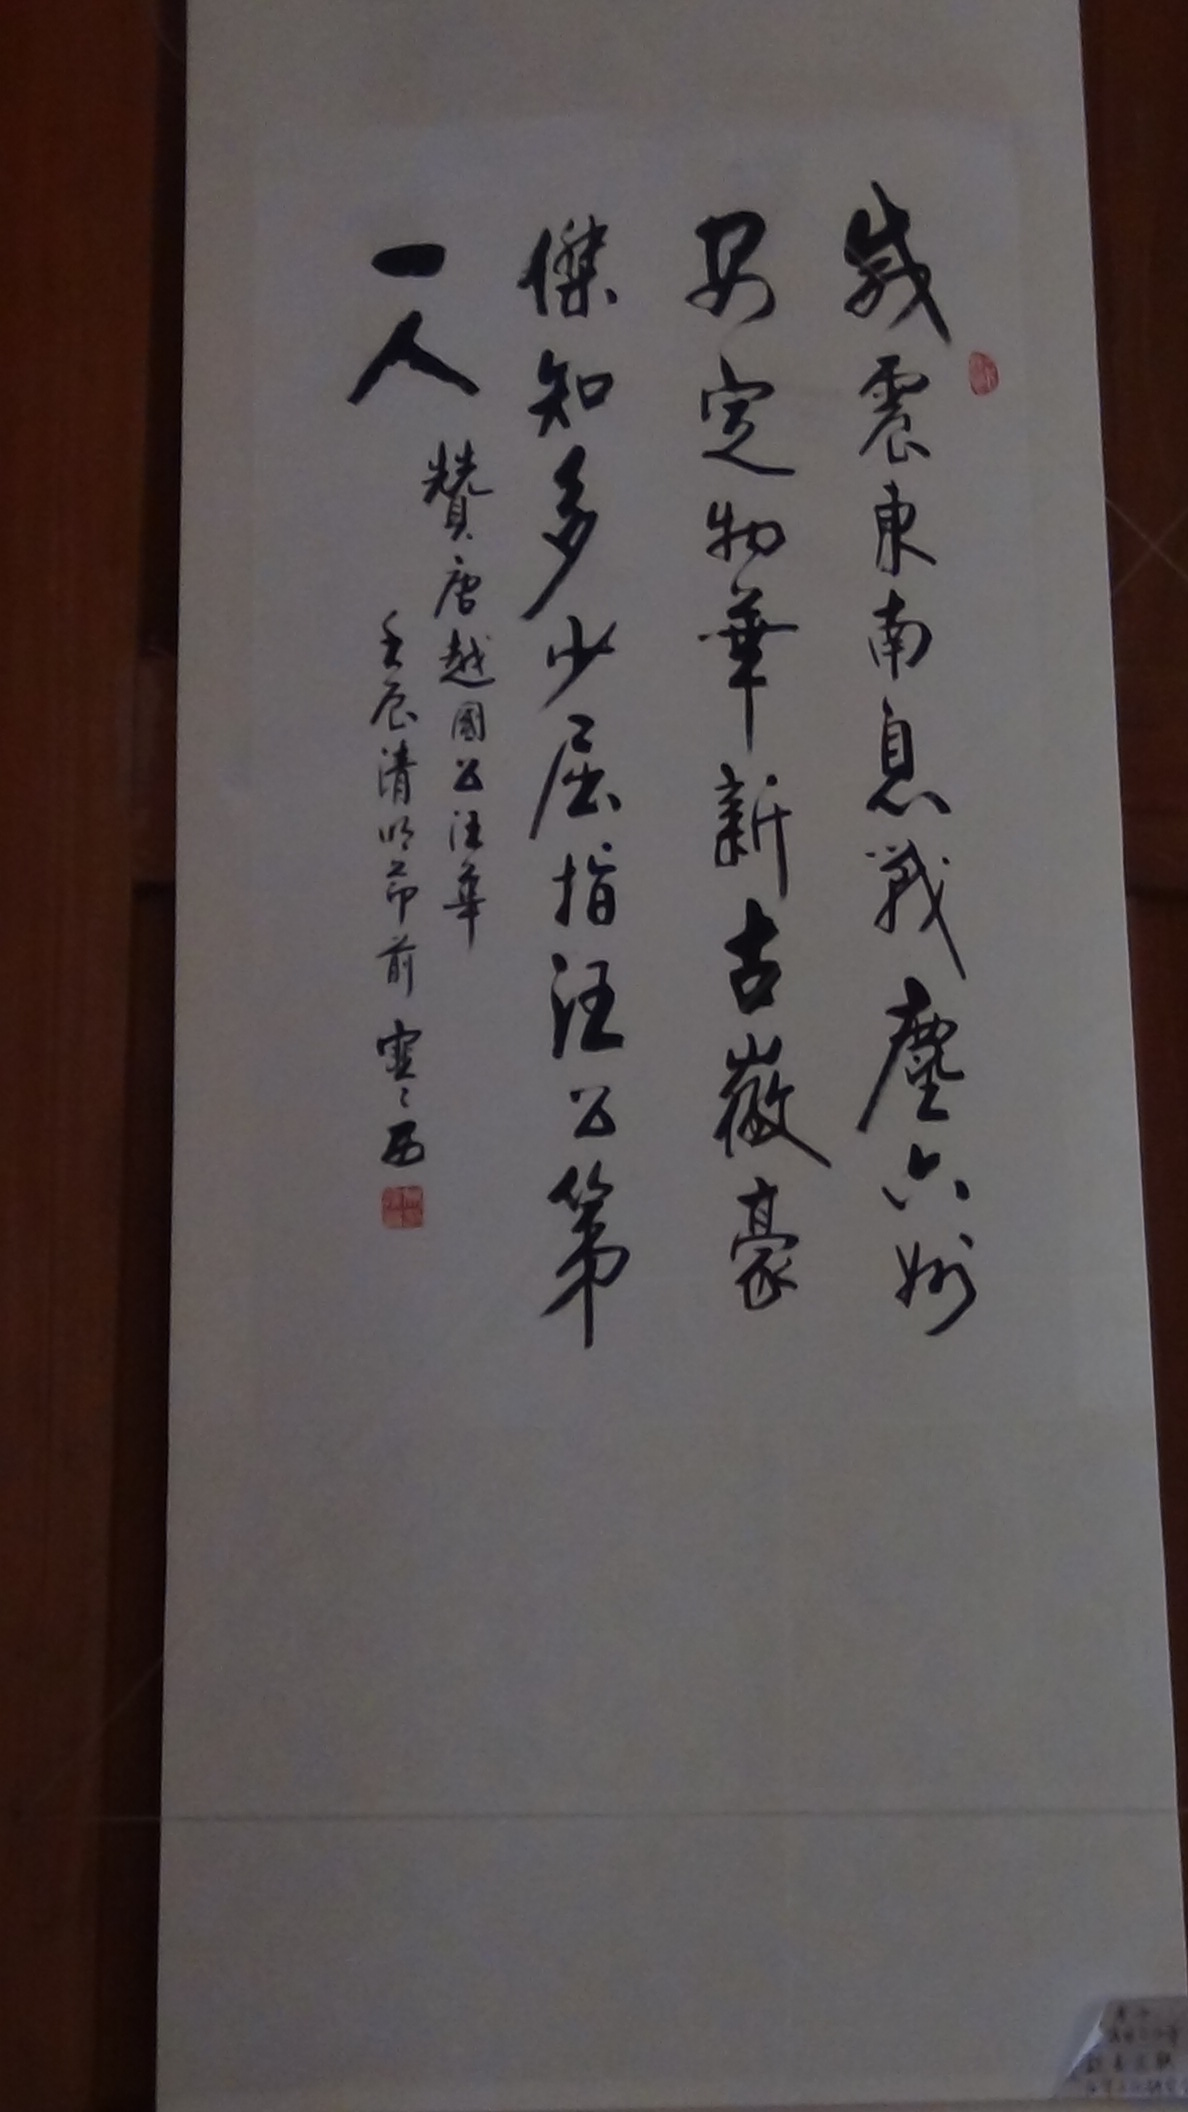 威震東南息戰塵六州
安定物華新古徽豪
傑知多少屈指汪公第
一人
贊唐越國公汪華
壬辰清明节前